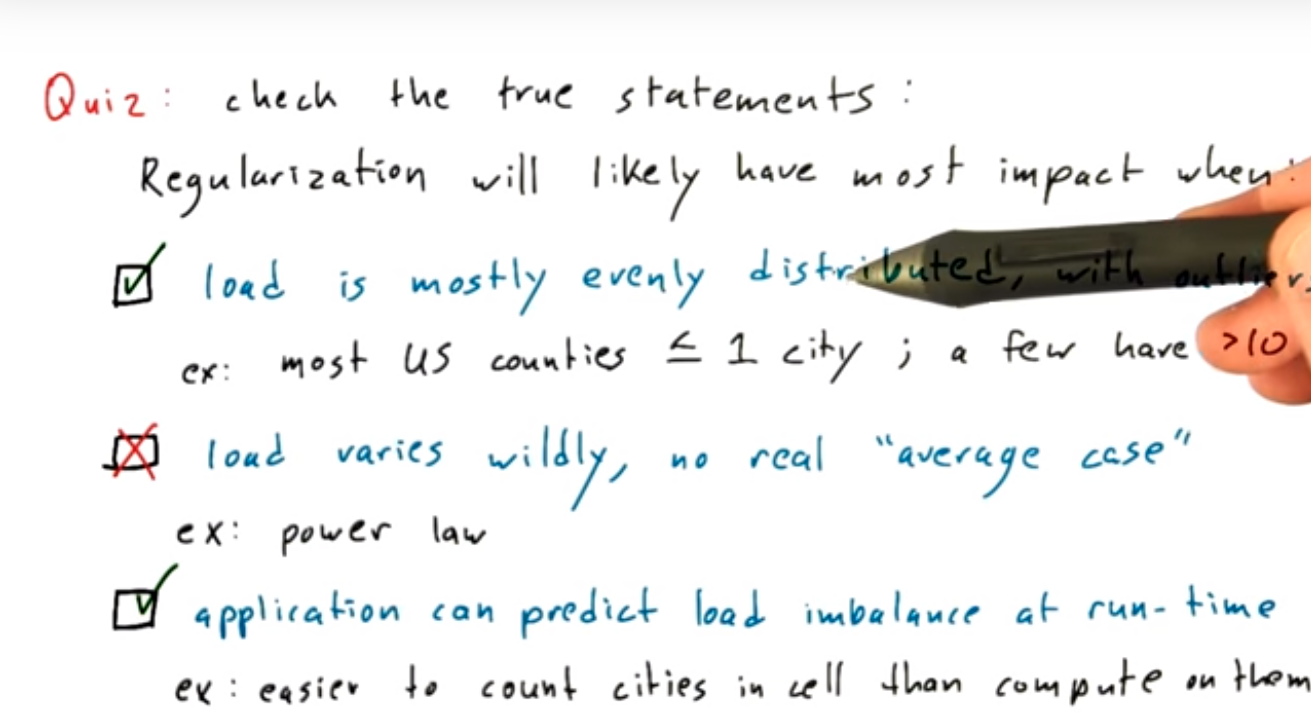 Quiz: check the true statements:
Regularization will likely have most impact when:
load is mostly evenly distributed, with outliers
ex: most US counties ≤ 1 city ; a few have >10
load varies wildly, no real "average case"
ex: power law
application can predict load imbalance at run-time
ex: easier to count cities in cell than compute on them